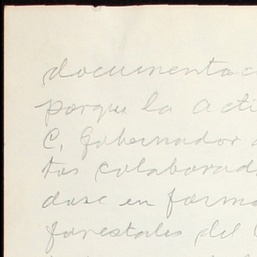 documentac
porque la acti
C. Gobernador
tos colaborad
dose en forma
forestales del